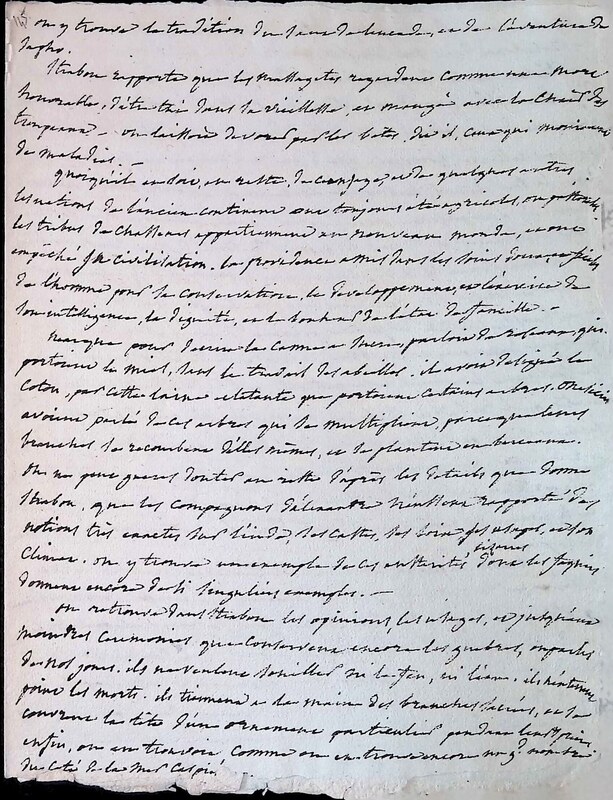 on y trouve la tradition du saut de leucade, et de l'aventure de
Sapho.
Strabon rapporte que les massagetes regardent comme une mort
honorable, d'être tué dans la vieillesse, et mangé avec la chair des
troupeaux — on laisse devorer par les bêtes, dit il, ceux qui meurent
de maladies. —
quoiqu'il en soit, au reste, de ces usages, et de quelques autres
les nations de l'ancien continent ont toujours été agricoles, ou pastorales
les tribus de chasseurs appartiennent au nouveau monde, et ont
empêché la civilisation. la providence a mis dans les soins doux, et
de l'homme pour la conservation, le developpement, et l'exercice de
son intelligence, la dignité, et le bonheur de l'être de famille. —
nearque pour decrire la canne a sucre, parloit de roseaux, qui
portoient le miel, sans le travail des abeilles. il avoit designé le
coton, par cette laine eclatante que portoient certains arbres. Onesicrite
avoient parlé de ces arbres qui se multiplient, parceque leurs
branches se recourbent d'elles mêmes, et se plantent en berceaux.
On ne peut gueres douter au reste d'après les details que donne
Strabon, que les compagnons d'alexandre n'eussent rapporté des
notions très exactes sur l'inde, ses castes, ses loix, ses usages, et son
climat. on y trouve un exemple de ces austerités bizarres dont les faquirs
donnent encore de si singuliers exemples. —
On retrouve dans Strabon les opinions, les usages, et jusqu'aux
moindres ceremonies que conservent encore les guebres, ou parsis
de nos jours. ils ne veulent souiller ni le feu, ni l'eau. ils n'enterrent
point les morts. ils tiennent a la main des branches sacrées, et se
couvrent la tête d'un ornement particulier pendant leurs prieres
enfin, on en trouvoit comme on en trouve encore un gd nombre
du côté de la mer Caspié